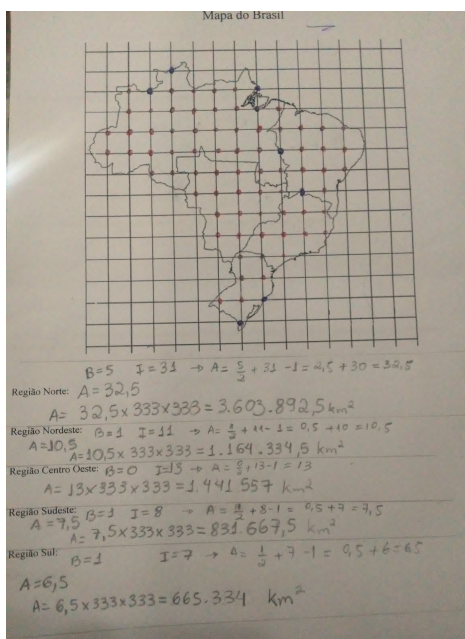 Mapa do Brasil
B=5 I=31 → A= 5/2 + 31 -1 = 2,5 + 30 = 32,5
Região Norte: A= 32,5
A= 32,5 x 333 x 333 = 3.603.892,5 km²
Região Nordeste: B=1 I=11 → A= 1/2 + 11 - 1 = 0,5 + 10 = 10,5
A=10,5
A=10,5 x 333 x 333 = 1.164.334,5 km²
Região Centro Oeste: B=0 I=13 → A= 0/2 + 13 - 1 = 13
A= 13 x 333 x 333 = 1.441 557 km²
Região Sudeste: B=1 I= 8 → A= 1/2 + 8 - 1 = 0,5 + 7 = 7,5
A = 7,5
A= 7,5 x 333 x 333 = 831.667,5 km²
Região Sul: B=1 I=7 → A= 1/2 + 7 - 1 = 0,5 + 6 = 6,5
A=6,5
A= 6,5 x 333 x 333 = 665.334 km²